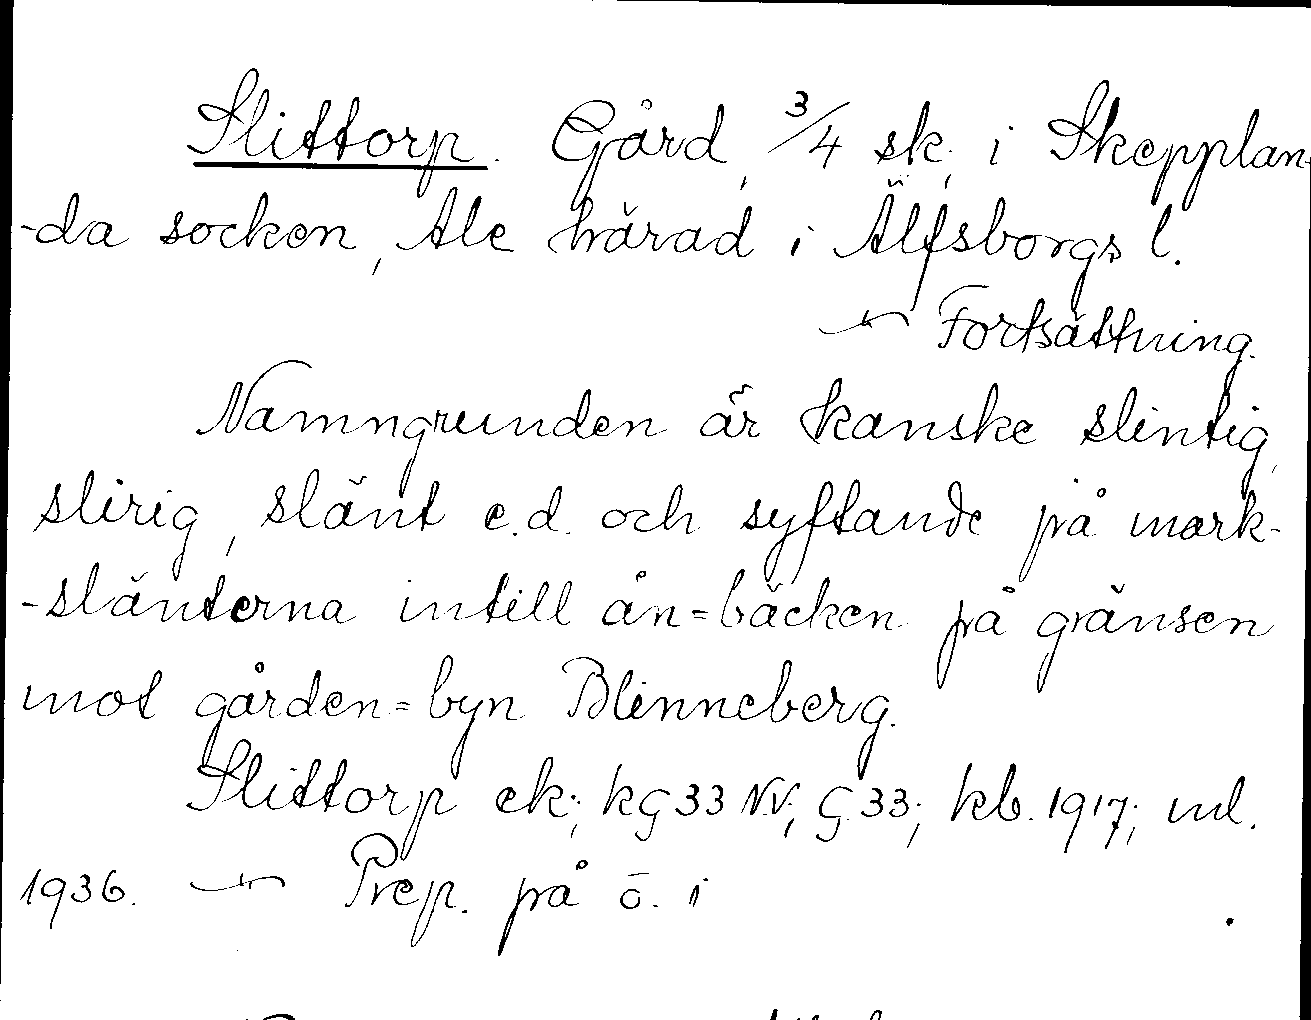 Slittorp. Gård, 3/4 sk, i Skepplan-
-da socken, Ale härad i Älfsborgs l.
Fortsättning.
Namngrunden är kanske slintig,
slirig, slänt e.d. och syftande på mark-
-slänterna intill ån=bäcken på gränsen
mot gården=byn Blinneberg.
Slittorp ek; kg 33 NV; G 33; kb. 1917; ml.
1936. Prep. på o. i